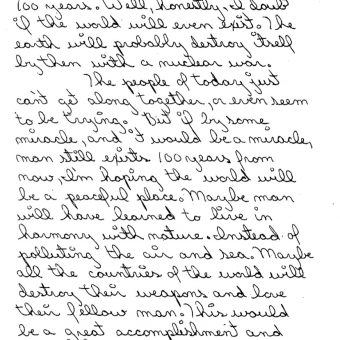 100 years. Well, honestly, I doubt
if the world will even exist. The
earth will probably destroy itself
by then with a nuclear war.
The people of today just
can't get along together, or even seem
to be trying. But if by some
miracle, and it would be a miracle,
man still exists 100 years from
now, I'm hoping the world will
be a peaceful place. Maybe man
will have learned to live in
harmony with nature. Instead of
polluting the air and sea. Maybe
all the countries of the world will
destroy their weapons and love
their fellow man. This would
be a great accomplishment and